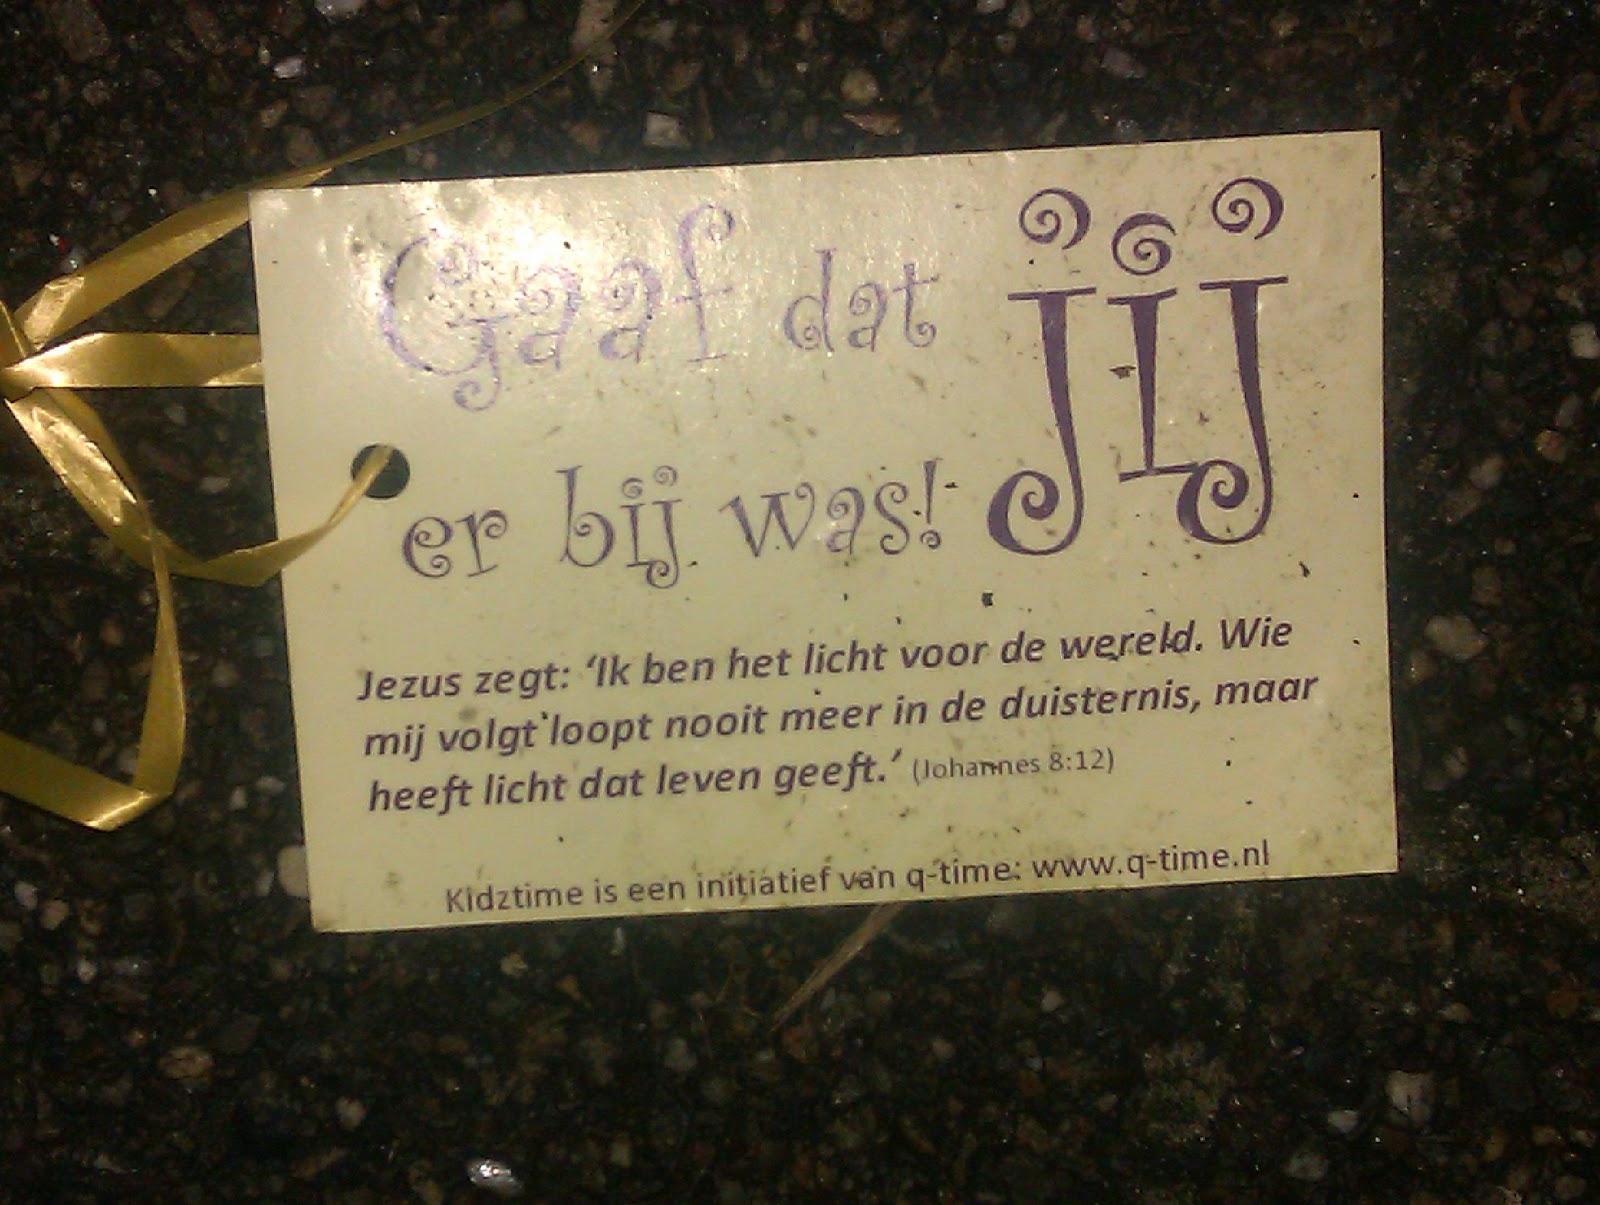 Gaaf dat jij
er bij was!
Jezus zegt: ‘Ik ben het licht voor de wereld. Wie
mij volgt loopt nooit meer in de duisternis, maar
heeft licht dat leven geeft.’ (Johannes 8:12)
Kidztime is een initiatief van q-time: www.q-time.nl